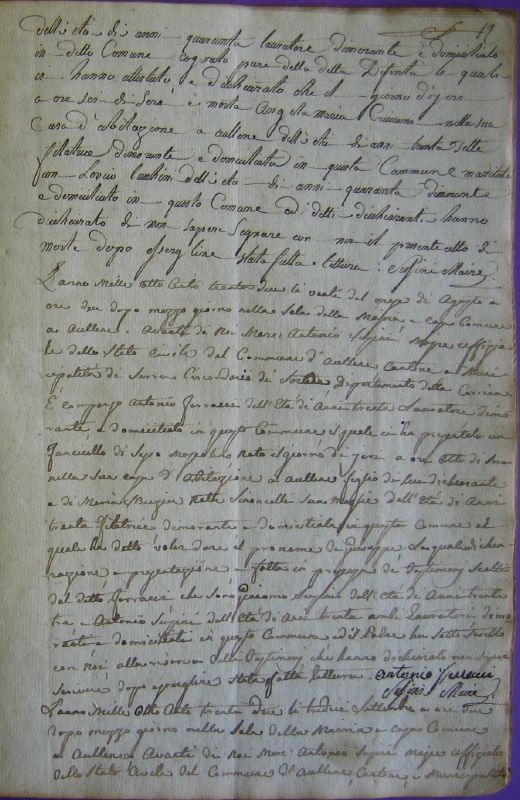 19
dell'età di anni quaranta lauratore dimorante e domiciliato
in detto Comune cognato pure della detta Defonta i quali
hanno attestato e dichiarato che il giorno d'ojeri
a ore sei di sera è morta Angela maria nella sua
Casa d'abitazione a aullene dell'età di anni
filatrice dimorante e domiciliata in questo Commune maritata
con dell'età di anni quaranta dimorante
e domiciliato in questo Comune ed i detti dichiaranti hanno
dichiarato di non sapere segnare con noi il presente atto di
morte dopo essergline stata fatta lettura.
L'anno Mille otto Cento trenta due li venti del mese di Agosto a
ore due dopo mezzo giorno nella Sala della Meria e capo Comune
a Aullene. Avanti di Noi Mere Antonio maire uffizia
le dello Stato Civile del Commune d'Aullene Cantone e Muni
cipalità di Serra Circondario di Sartene Departemento della Corsica
È comparso Antonio Ferracci dell'Età di Anni trenta Lauratore dimo
rante e domiciliato in questo Commune il quale ci ha presentato un
fanciullo di Sesso Mascolino nato il giorno di jeri a ore otto di sera
nella sua casa d'Abitazione a Aullene figlio di lui dichiarante
e di Maria sua moglie dell'Età di Anni
trenta filatrice dimorante e domiciliata in questo Comune al
quale ha detto voler dare il pronome di Giuseppe. La quale dichia
razione e presentazione fatta in presenza de Testimonj
dal detto Ferracci che sono Giacomo dell'Età di Anni trenta
tre e Antonio dell'Età di Anni trenta ambi Lauratori dimo
ranti e domiciliati in questo Commune ed il Padre ha sotto scritto
con Noi Testimonj che hanno dichiarato non sapere
scrivere dopo essergline stata fatta lettura. Antonio Ferracci
Maire
L'anno Mille Otto Cento trenta due li tredici Settembre a ore due
dopo mezzo giorno nella Sala della Meria e capo Comune
a Aullene Avanti di Noi Mere Antonio maire uffiziale
dello Stato Civile del Commune d'Aullene, Cantone e Municipalità